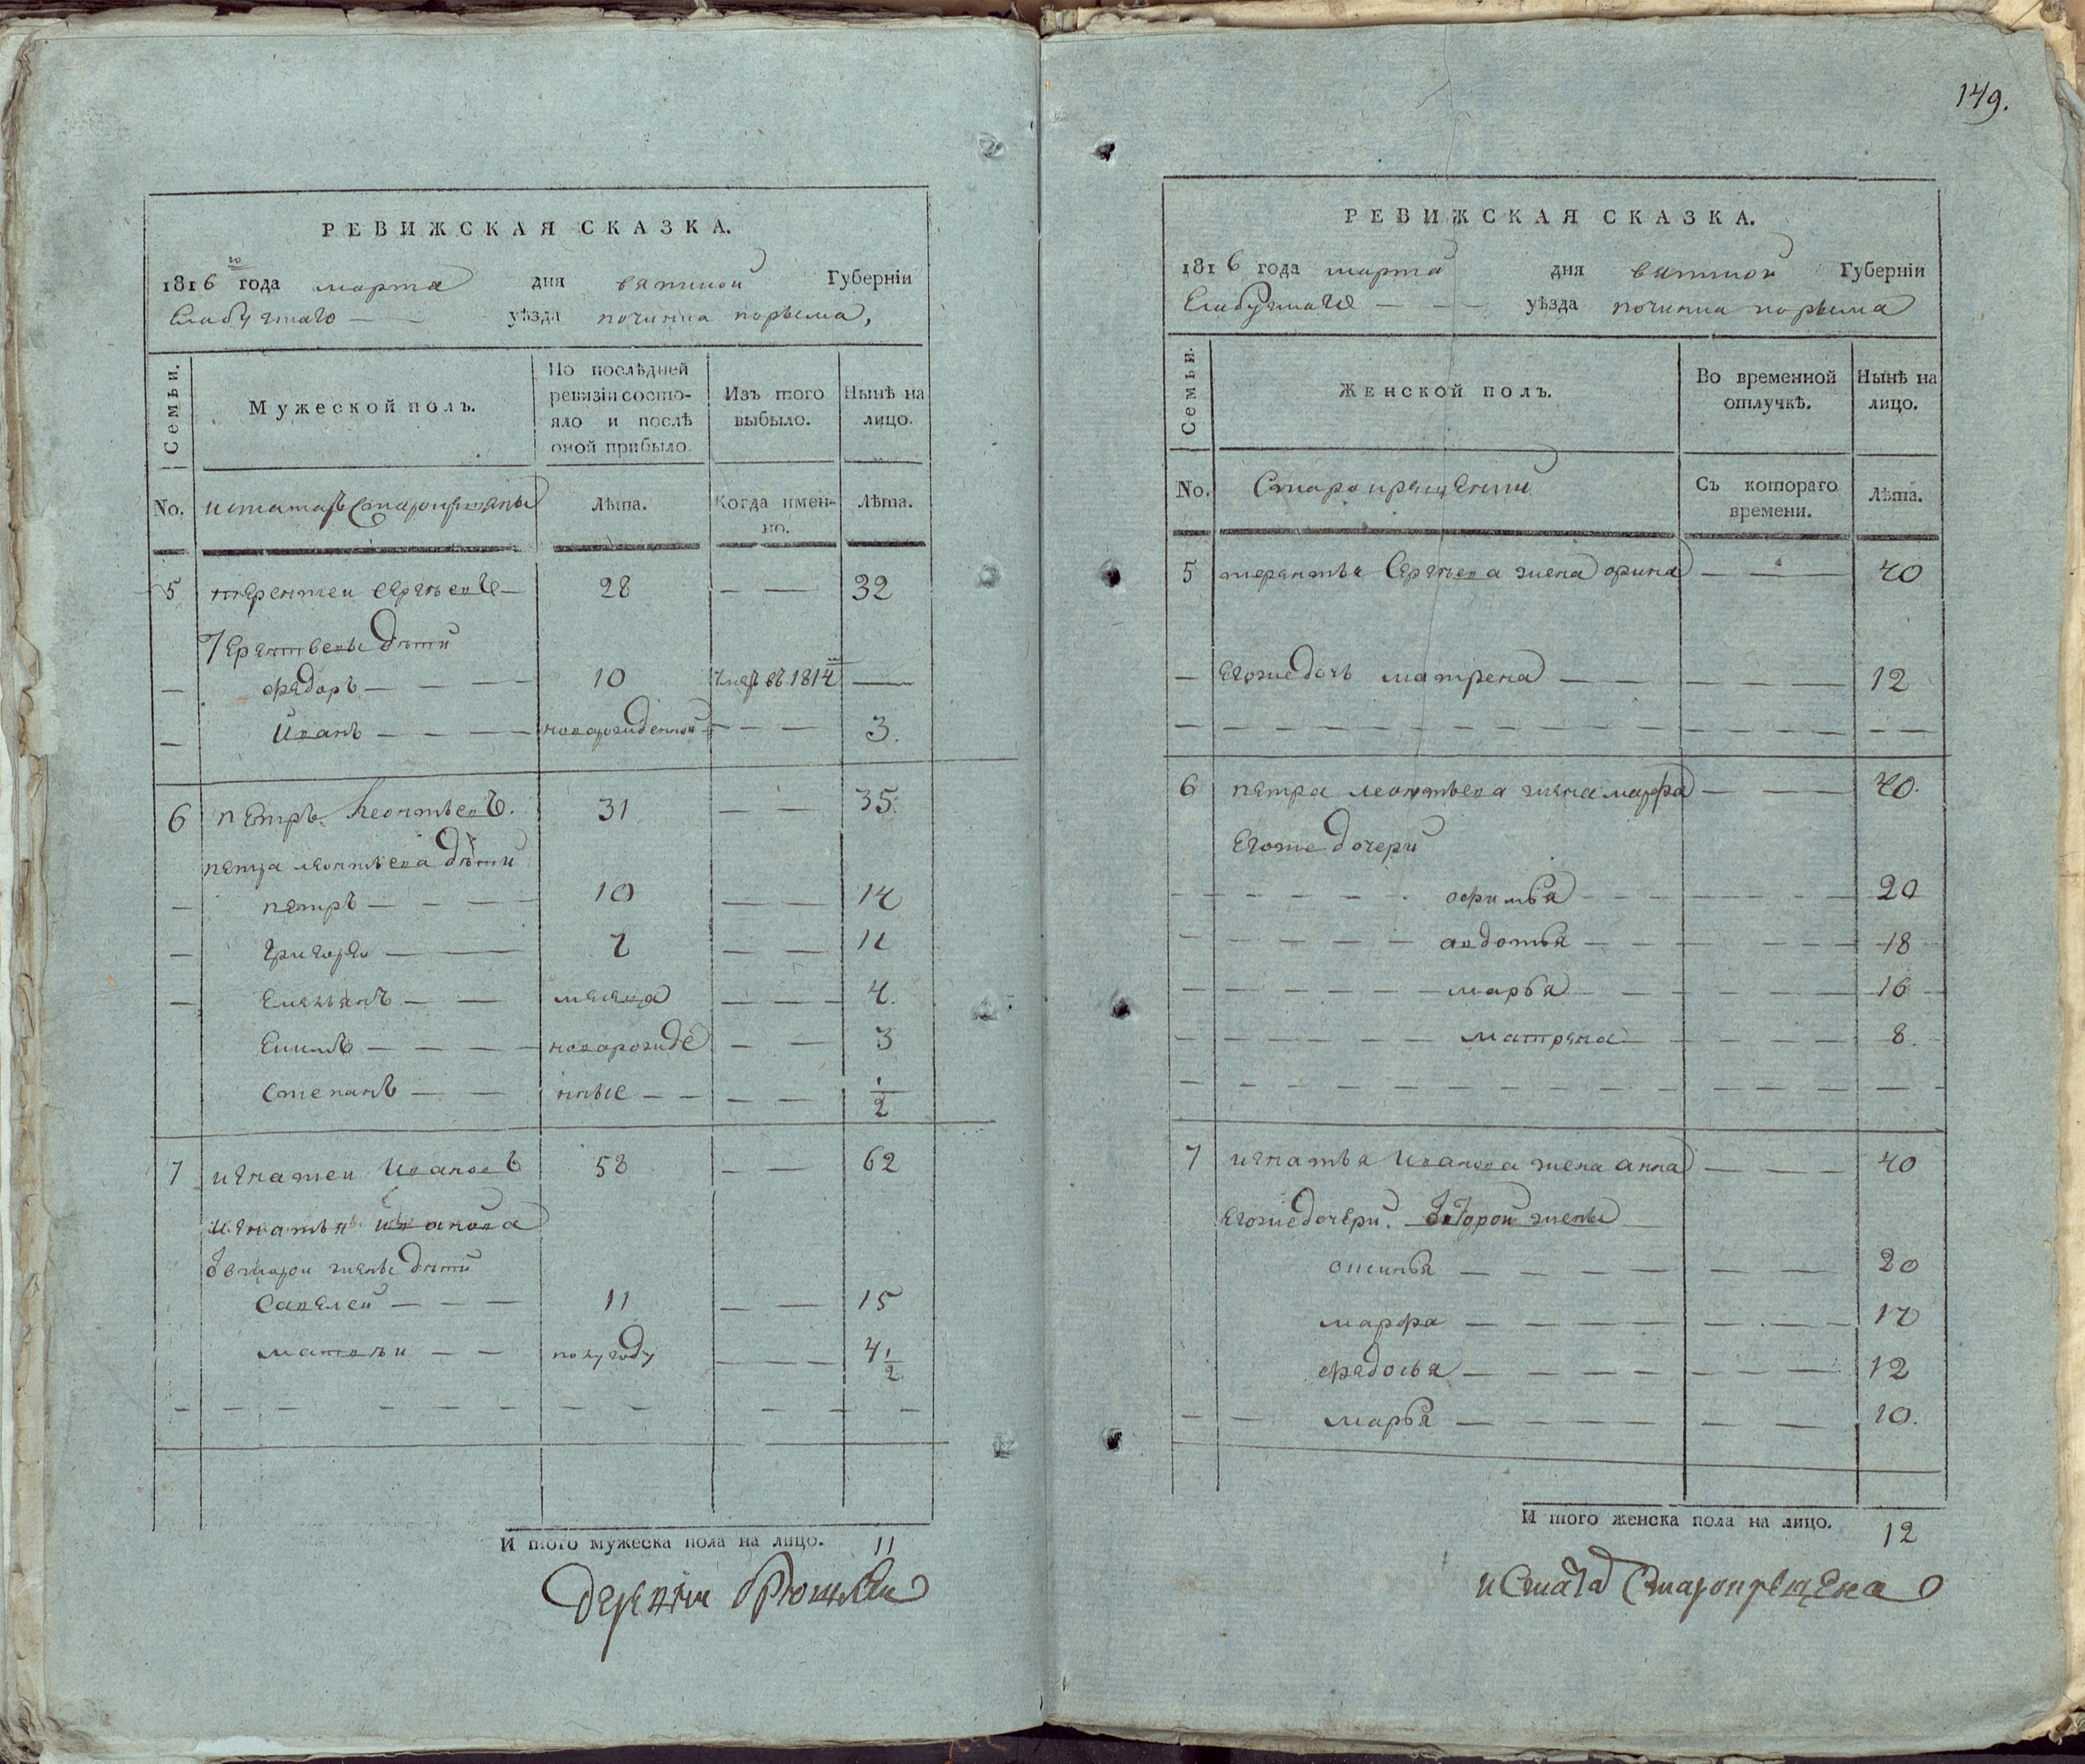 РЕВИЖСКАЯ СКАЗКА.
1816го года марта дня вятской Губерніи
Елабугскаго уѣзда починка норьема,
Семьи. Мужеской полъ. По послѣдней ревизіи состояло и послѣ оной прибыло. Изъ того выбыло. Нынѣ на лицо.
No. Лѣта. Когда именно. Лѣта.
5 терентеи сергѣевъ 28 — — 32
Терентьевы дѣти
федоръ — — — 10 умеръ въ 1814м —
Иванъ — — — новорожденной — — 3.
6 петръ Леонтьевъ. 31 — — 35.
петра леонтьева дѣти
петръ — — — 10 — — 14
григореи — — 7 — — 11
Емельянъ — — месяца — — — 4.
Екимъ — — — новорожде — — 3
степанъ — — нные — — — — 1/2
7 игнатеи Ивановъ 58 — — 62
игнатья иванова
втарои жены дѣти
Савелеи — — — 11 — — 15
матвѣи — — полугоду — — — 4 1/2
И того мужеска пола на лицо. 11
149.
РЕВИЖСКАЯ СКАЗКА.
1816 года марта дня вятской Губерніи
Елабугскаго — — — уѣзда починка норьема
Семьи. Женской полъ. Во временной отлучкѣ. Нынѣ на лицо.
No. Старокрещении Съ котораго времени. Лѣта.
5 терентья Сергѣева жена орина — — 40
— Егожедочь матрена — — — — — 12
6 петра леонтьева жена марфа — — — 40.
Егоже дочери
офимья 20
авдотья 18
марья 16
матрена 8.
7 игнатья Иванова жена анна — — — 40
Егожедочери. Второй жены
аксинья 20
марфа 17
федосья 12
марья 10.
И того женска пола на лицо. 12